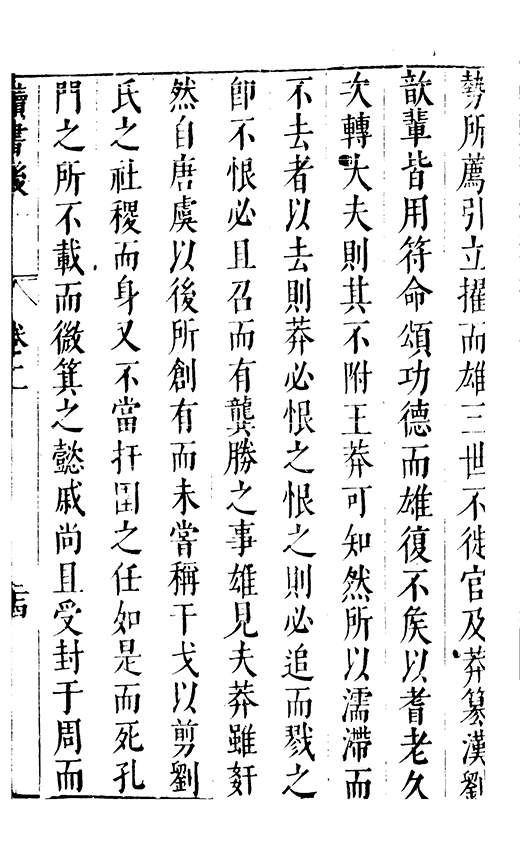 勢所薦引立擢而雄三世不徙官及莽篡漢劉
歆輩皆用符命頌功德而雄復不矦以耆老久
次轉大夫則其不附王莽可知然所以濡滯而
不去者以去則莽必恨之恨之則必追而戮之
卽不恨必且召而有龔勝之事雄見夫莽雖奸
然自唐虞以後所創有而未嘗稱干戈以剪劉
氏之社稷而身又不當扞圉之任如是而死孔
門之所不載而微箕之懿戚尚且受封于周而
讀書後
卷之二